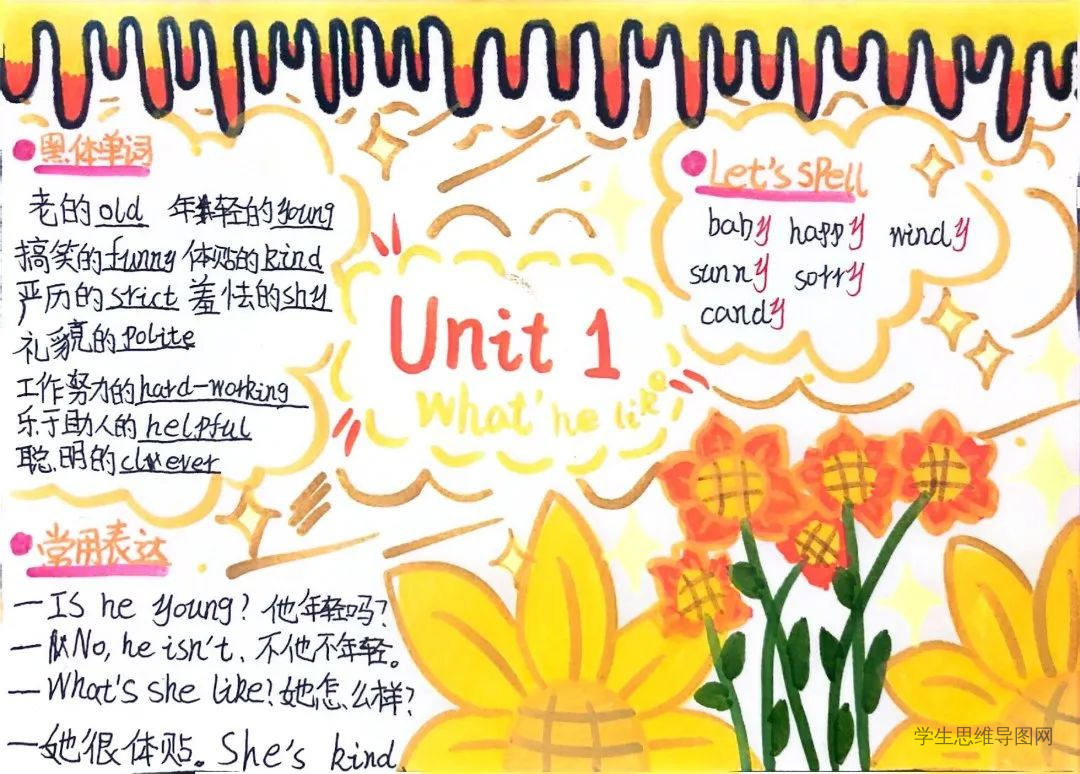 黑体单词
老的 old 年轻的 young
搞笑的 funny 体贴的 kind
严厉的 strict 羞怯的 shy
礼貌的 polite
工作努力的 hard-working
乐于助人的 helpful
聪明的 clever
Unit 1
What' he like
Let's spell
baby happy windy
sunny sorry
candy
常用表达
—Is he young? 他年轻吗?
—No, he isn't. 不他不年轻。
—What's she like? 她怎么样?
—她很体贴。She's kind.
学生思维导图网